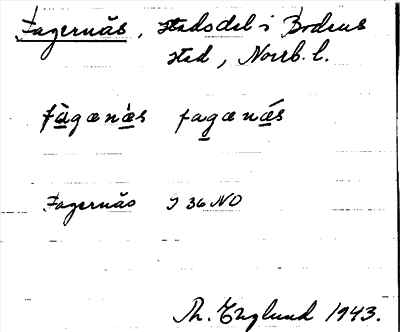 Fagernäs, stadsdel i Bodens
stad, Norrb. l.
fàgænæ̀s fagænǽs
Fagernäs J 36 NO
Th. Englund 1943.